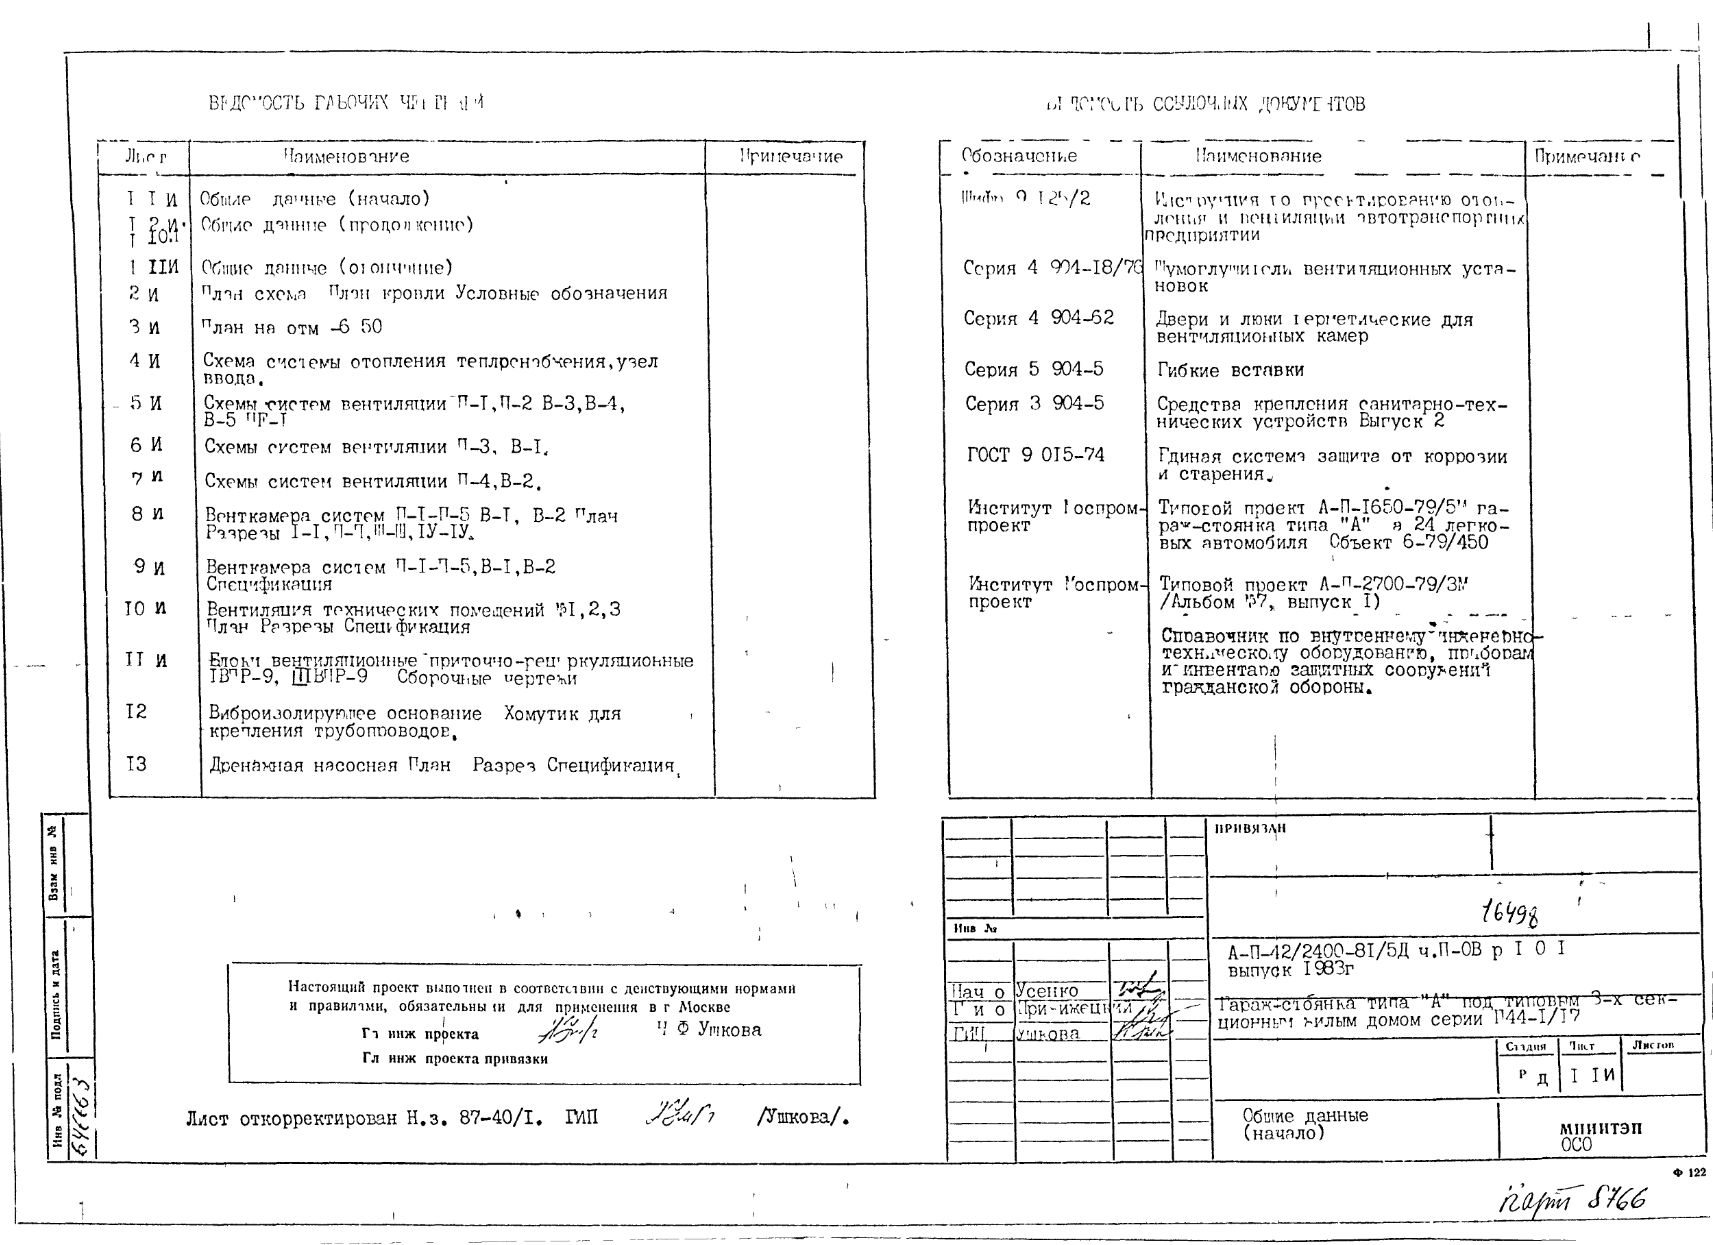 ВЕДОМОСТЬ РАБОЧИХ ЧЕРТЕЖЕЙ
Лист Наименование Примечание
I I И Общие данные (начало)
I 2 И
I 10И Общие данные (продолжение)
I IIИ Общие данные (окончание)
2 И План схема План кровли Условные обозначения
3 И План на отм -6 50
4 И Схема системы отопления теплоснабжения, узел
ввода.
5 И Схемы систем вентиляции П-I, П-2 В-3, В-4,
В-5
6 И Схемы систем вентиляции П-3, В-I.
7 И Схемы систем вентиляции П-4, В-2.
8 И Венткамера систем П-I-П-5 В-I, В-2 План
Разрезы I-I, П-П, Ш-Ш, IУ-IУ.
9 И Венткамера систем П-I-П-5, В-I, В-2
Спецификация
IO И Вентиляция технических помещений №I,2,3
План Разрезы Спецификация
II И Блоки вентиляционные приточно-рециркуляционные
Сборочные чертежи
I2 Виброизолирующее основание Хомутик для
крепления трубопроводов.
I3 Дренажная насосная План Разрез Спецификация
ВЕДОМОСТЬ ССЫЛОЧНЫХ ДОКУМЕНТОВ
Обозначение Наименование Примечание
Инструкция по проектированию отоп-
ления и вентиляции автотранспортных
предприятий
Серия 4 904-I8/76 Шумоглушители вентиляционных уста-
новок
Серия 4 904-62 Двери и люки герметические для
вентиляционных камер
Серия 5 904-5 Гибкие вставки
Серия 3 904-5 Средства крепления санитарно-тех-
нических устройств Выпуск 2
ГОСТ 9 0I5-74 Единая система защита от коррозии
и старения.
Институт Моспром-
проект Типовой проект А-П-I650-79/5М га-
раж-стоянка типа "А" 24 легко-
вых автомобиля Объект 6-79/450
Институт Моспром-
проект Типовой проект А-П-2700-79/3М
/Альбом №7, выпуск I)
Справочник по внутреннему инженерно-
техническому оборудованию, приборам
и инвентарю защитных сооружений
гражданской обороны.
Взам инв №
Подпись и дата
Инв № подл
Настоящий проект выполнен в соответствии с действующими нормами
и правилами, обязательными для применения в г Москве
Гл инж проекта Ф Ушкова
Гл инж проекта привязки
Лист откорректирован Н.з. 87-40/I. ГИП /Ушкова/.
ПРИВЯЗАН
Инв №
16498
А-П-42/2400-8I/5Д ч.П-ОВ р I 0 I
выпуск I983г
Нач о Усенко
Г и о
ГИП Ушкова
Гараж-стоянка типа "А" под типовым 3-х сек-
ционным жилым домом серии П44-I/I7
Стадия Лист Листов
Р Д I IИ
Общие данные
(начало)
МНИИТЭП
ОСО
Ф 122
8766